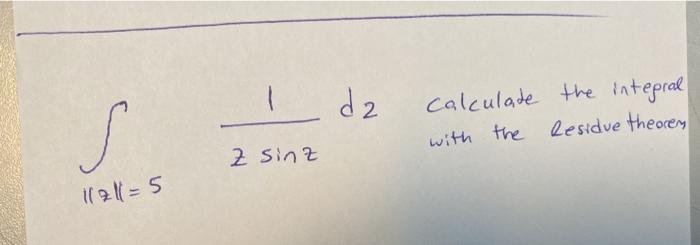 ∫ 1 / (z sin z) dz calculate the integral
||z|| = 5 with the Residue theorem